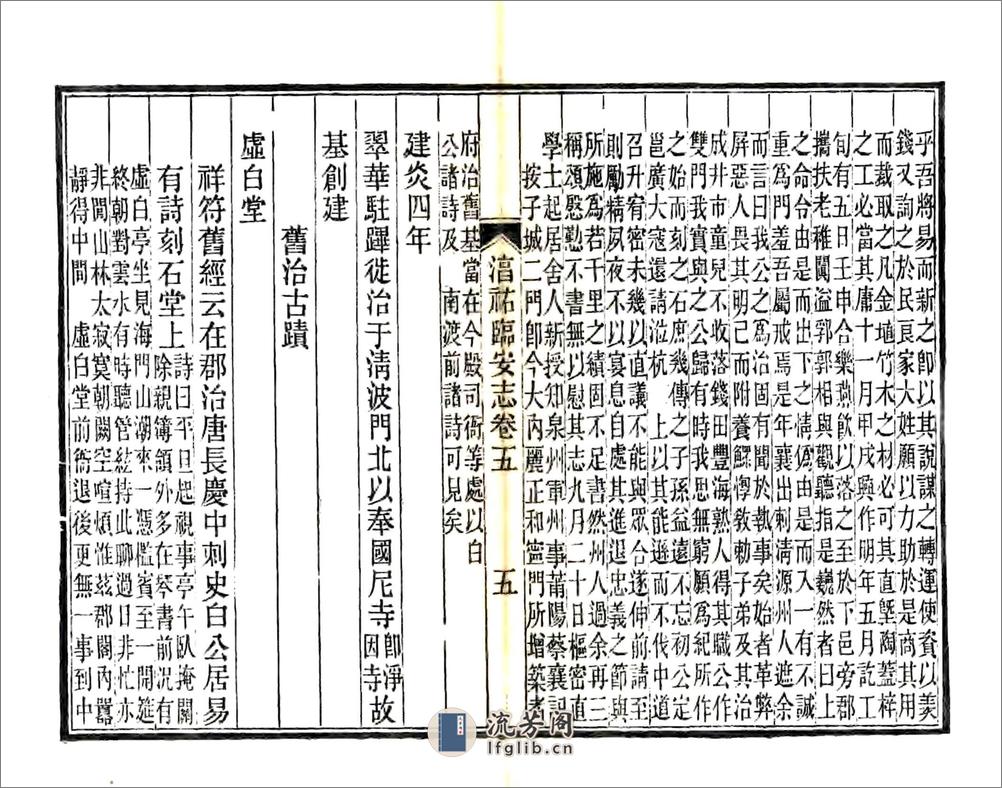 乎吾將易而新之卽以其說謀之轉運使資以羨
錢又詢之於民良家大姓願以力助於是商其用
而裁取之凡金埴竹木之材必可其直塹陶蓋梓
之工必當其庸十一月甲戌興作明年五月訖工
旬有五日壬申合樂燕飲以落之至於下邑旁郡
攜扶老稚闐溢郭郛相與觀聽指是巍然者曰上
之命令由是而出下之情僞由是而入一有不誠
重爲門羞吾屬戒焉是年襄出刺淸源州人遮余
而言曰我公之爲治固有聞於執事矣始者革弊
屏惡人畏其明已而附養鰥惸敎勅子弟及其治
成井市童兒不收落錢田豐海熟人得其職公作
雙門我實與之公歸有時我思無窮願爲紀所作
之始而刻之石庶幾傳之子孫益遠不忘初公定
邕廣大寇還請涖杭　上以其能遜而不伐中道
召升宥密未幾以直議不能與眾合遂伸前請至
則勵精夙夜不以寢息自處其進退忠義之節與
所施爲若千里之績固不足書然州人過余再三
稱頌慇懃不書無以慰其志九月二十日樞密直
學士起居舍人新授知泉州軍州事莆陽蔡襄記
按子城二門卽今大內麗正和寧門所增築者
府治舊基當在今殿司衙等處以白
公諸詩及　南渡前諸詩可見矣
建炎四年
翠華駐蹕徙治于淸波門北以奉國尼寺卽淨因寺故
基創建
舊治古蹟
虛白堂
祥符舊經云在郡治唐長慶中刺史白公居易
有詩刻石堂上詩曰平旦起視事亭午臥掩關
除親簿領外多在琴書前況有
虛白亭坐見海門山潮來一憑檻賓至一開筵
終朝對雲水有時聽管絃持此聊過日非忙亦
非閒山林太寂寞朝闕空喧煩惟茲郡閣內囂
靜得中間　虛白堂前衙退後更無一事到中
淳祐臨安志卷五
五
流芳阁
lfglib.cn